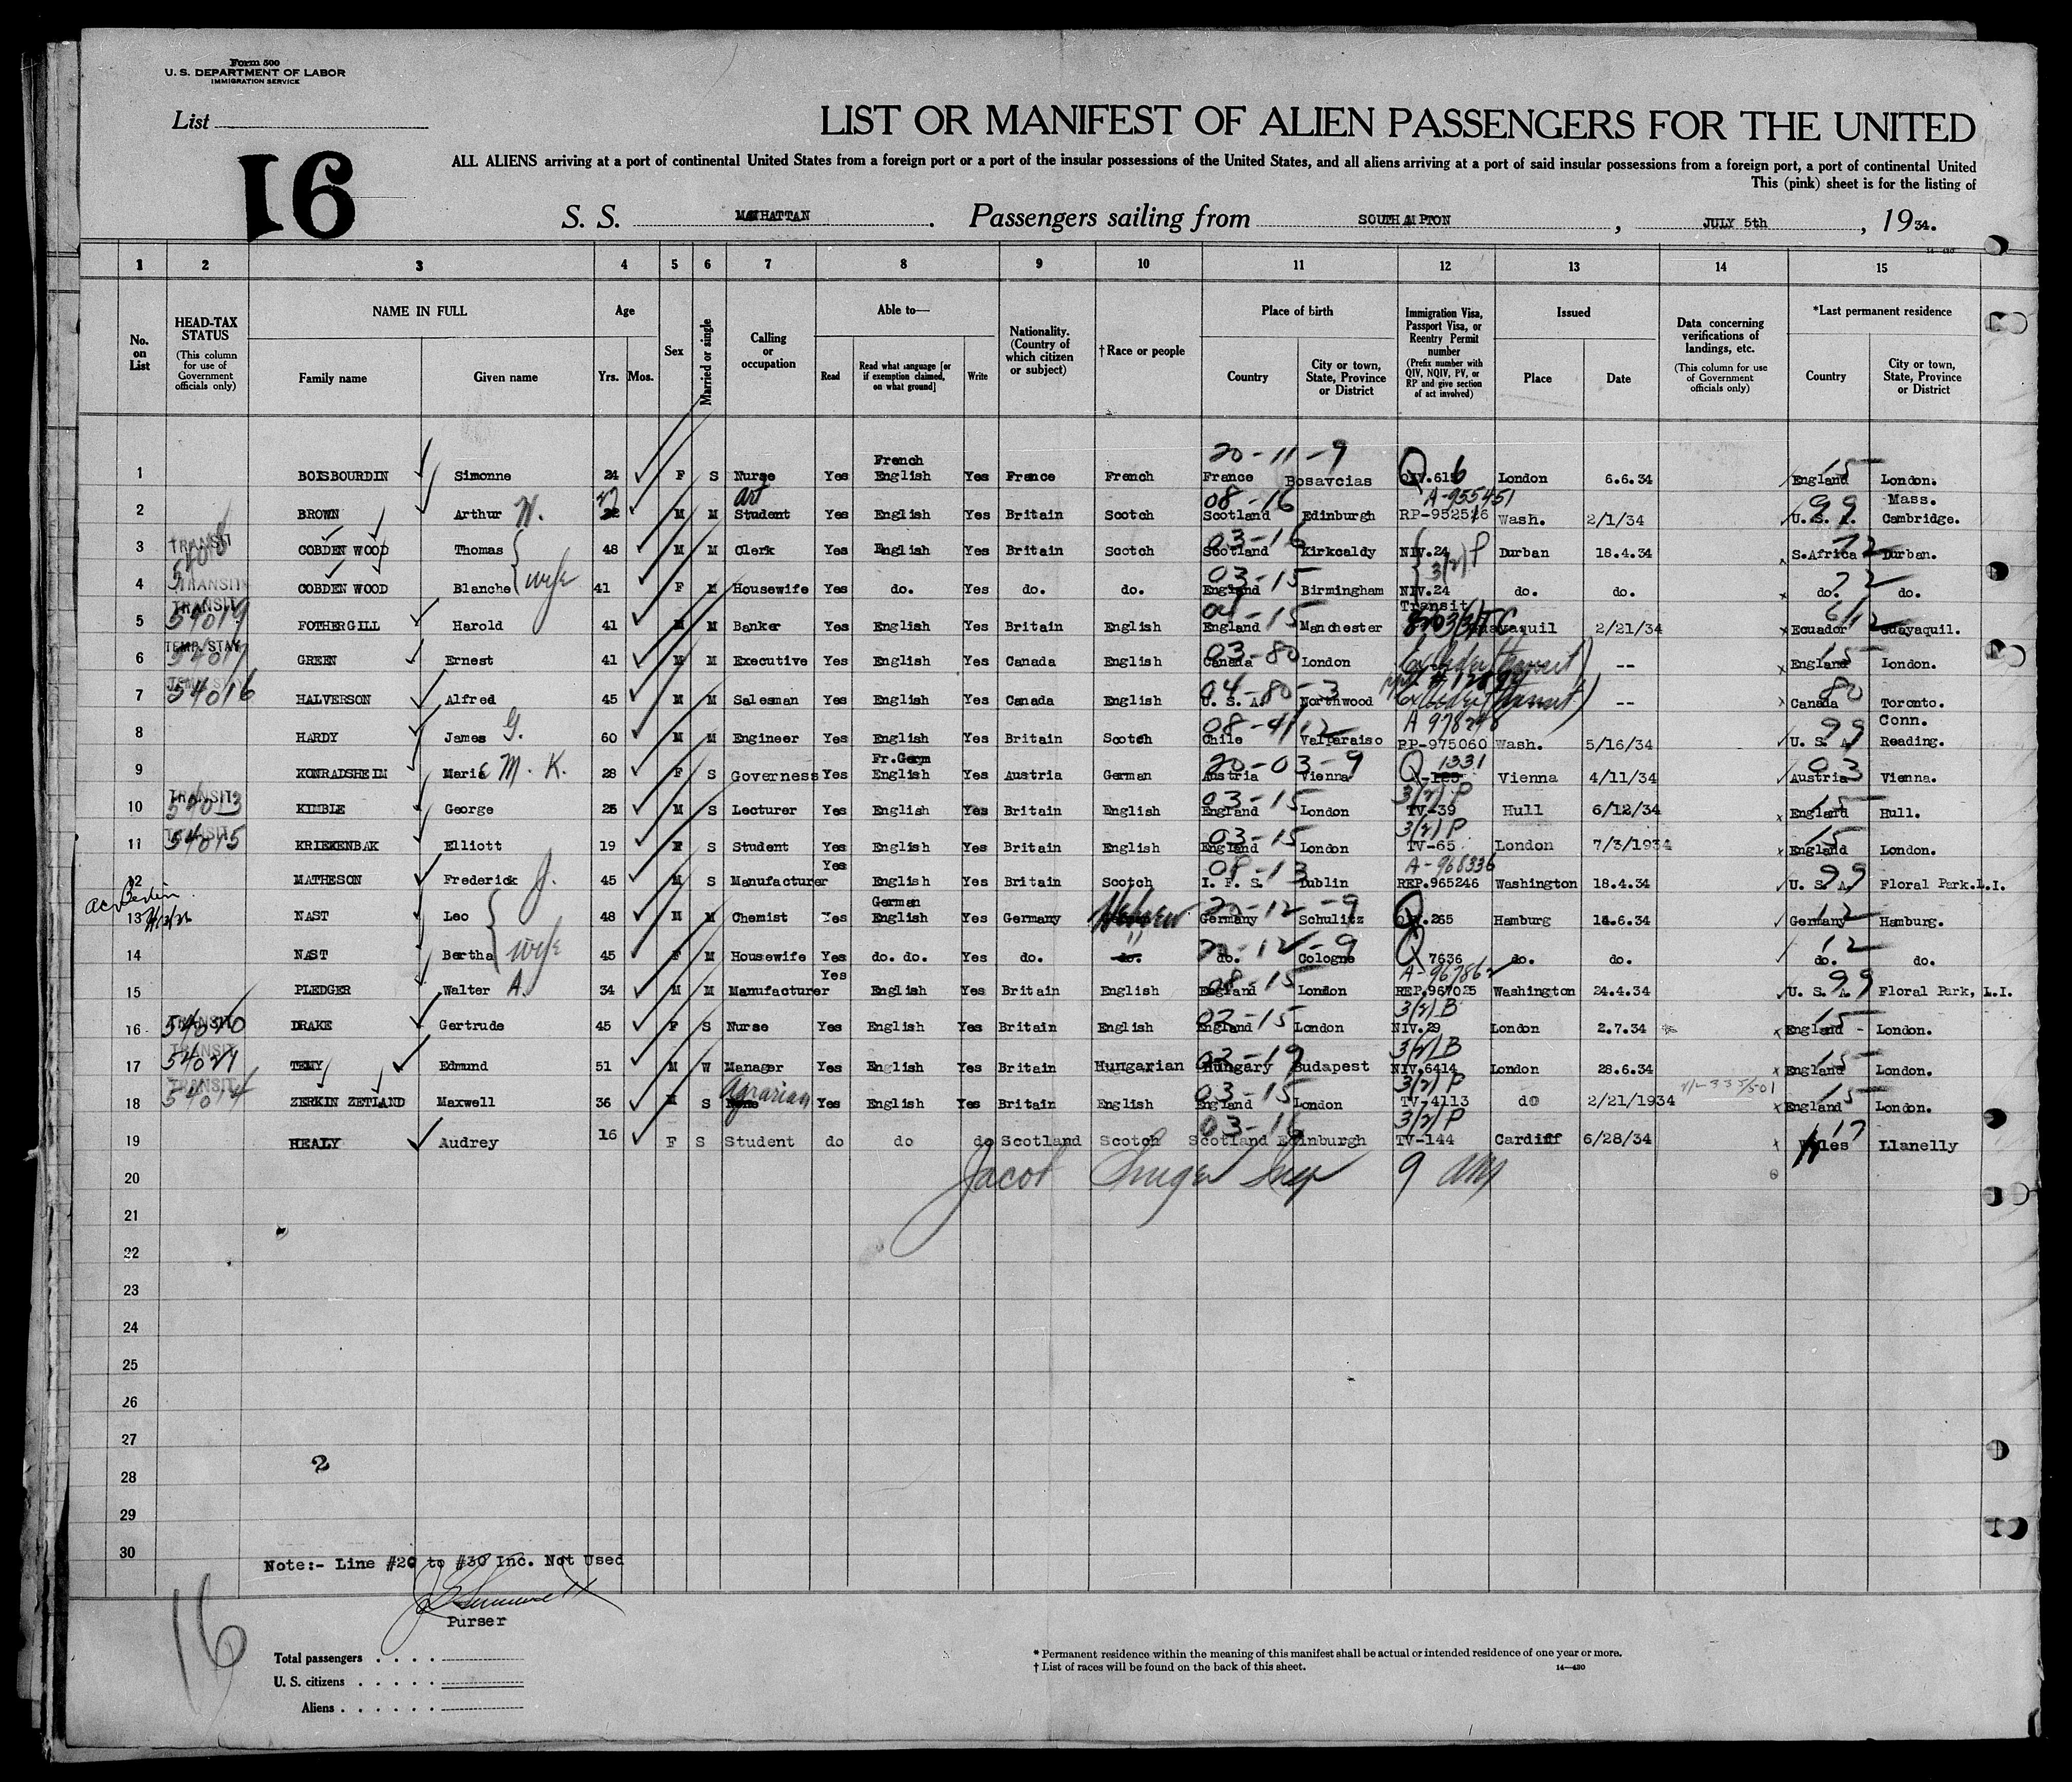 Form 500
U. S. DEPARTMENT OF LABOR
IMMIGRATION SERVICE
List
16
LIST OR MANIFEST OF ALIEN PASSENGERS FOR THE UNITED
ALL ALIENS arriving at a port of continental United States from a foreign port or a port of the insular possessions of the United States, and all aliens arriving at a port of said insular possessions from a foreign port, a port of continental United
This (pink) sheet is for the listing of
S. S. MANHATTAN . Passengers sailing from SOUTHAMPTON , JULY 5th , 1934.
1 2 3 4 5 6 7 8 9 10 11 12 13 14 15
No. on List
HEAD-TAX STATUS (This column for use of Government officials only)
NAME IN FULL
Family name Given name
Age
Yrs. Mos.
Sex
Married or single
Calling or occupation
Able to—
Read Read what language [or if exemption claimed, on what ground] Write
Nationality. (Country of which citizen or subject)
† Race or people
Place of birth
Country City or town, State, Province or District
Immigration Visa, Passport Visa, or Reentry Permit number (Prefix number with QIV, NQIV, PV, or RP and give section of act involved)
Issued
Place Date
Data concerning verifications of landings, etc. (This column for use of Government officials only)
*Last permanent residence
Country City or town, State, Province or District
20-11-9
French
1 BOISBOURDIN Simonne 24 F S Nurse Yes English Yes France French France Bosavcias London 6.6.34 England 15 London.
Art 08-16 A-955451 99 Mass.
2 BROWN Arthur W. M M Student Yes English Yes Britain Scotch Scotland Edinburgh RP-952516 Wash. 2/1/34 U. S. A. Cambridge.
TRANSIT 03-16
3 COBDEN WOOD Thomas 48 M M Clerk Yes English Yes Britain Scotch Scotland Kirkcaldy NIV.24 3/2/P Durban 18.4.34 S.Africa 72 Durban.
TRANSIT 03-15
4 COBDEN WOOD Blanche wife 41 F M Housewife Yes do. Yes do. do. England Birmingham NIV.24 do. do. do. 72 do.
TRANSIT 54019 Transit
5 FOTHERGILL Harold 41 M M Banker Yes English Yes Britain English England Manchester Guayaquil 2/21/34 Ecuador Guayaquil.
TEMP. STAY 54017 03-80
6 GREEN Ernest 41 M M Executive Yes English Yes Canada English Canada London -- England 15 London.
54016 04-80-3
7 HALVERSON Alfred 45 M M Salesman Yes English Yes Canada English U. S. A. Northwood -- Canada 80 Toronto.
A 978248 99 Conn.
8 HARDY James G. 60 M M Engineer Yes English Yes Britain Scotch Chile Valparaiso RP-975060 Wash. 5/16/34 U. S. A. Reading.
Fr.Germ 20-03-9 Q 1331
9 KONRADSHEIM Marie M. K. 28 F S Governess Yes English Yes Austria German Austria Vienna Vienna 4/11/34 Austria 03 Vienna.
TRANSIT 54013 03-15 3/2/P
10 KIMBLE George 25 M S Lecturer Yes English Yes Britain English England London TV-39 Hull 6/12/34 England 15 Hull.
TRANSIT 54015 03-15 3/2/P
11 KRIEKENBAK Elliott 19 M S Student Yes English Yes Britain English England London TV-65 London 7/3/1934 England 15 London.
08-13 A-968336
12 MATHESON Frederick J. 45 M S Manufacturer Yes English Yes Britain Scotch I. F. S. Dublin REP.965246 Washington 18.4.34 U. S. A. 99 Floral Park.L.I.
German 20-12-9
13 NAST Leo 48 M M Chemist Yes English Yes Germany Hebrew Germany Schulitz 265 Hamburg 14.6.34 Germany 12 Hamburg.
20-12-9 Q
14 NAST Bertha wife 45 F M Housewife Yes do. do. Yes do. do. do. Cologne 7636 do. do. do. 12 do.
08-15 A-967862
15 PLEDGER Walter A. 34 M M Manufacturer Yes English Yes Britain English England London REP.967025 Washington 24.4.34 U. S. A. 99 Floral Park, L.I.
TRANSIT 54020 3/2/B
16 DRAKE Gertrude 45 F S Nurse Yes English Yes Britain English England London NIV.29 London 2.7.34 England 15 London.
TRANSIT 54021 03-19 3/2/B
17 Edmund 51 M W Manager Yes English Yes Britain Hungarian Hungary Budapest NIV.6414 London 28.6.34 England 15 London.
TRANSIT 54014 Agrarian 03-15 3/2/P
18 ZERKIN ZETLAND Maxwell 36 M S None Yes English Yes Britain English England London TV-4113 do 2/21/1934 England 15 London.
03-16 3/2/P
19 HEALY Audrey 16 F S Student do do do Scotland Scotch Scotland Edinburgh TV-144 Cardiff 6/28/34 Wales 17 Llanelly
20 Jacob 9
21
22
23
24
25
26
27
2
28
29
30
Note:- Line #20 to #30 Inc. Not Used
Purser
16
Total passengers
U. S. citizens
Aliens
* Permanent residence within the meaning of this manifest shall be actual or intended residence of one year or more.
† List of races will be found on the back of this sheet.
14—430